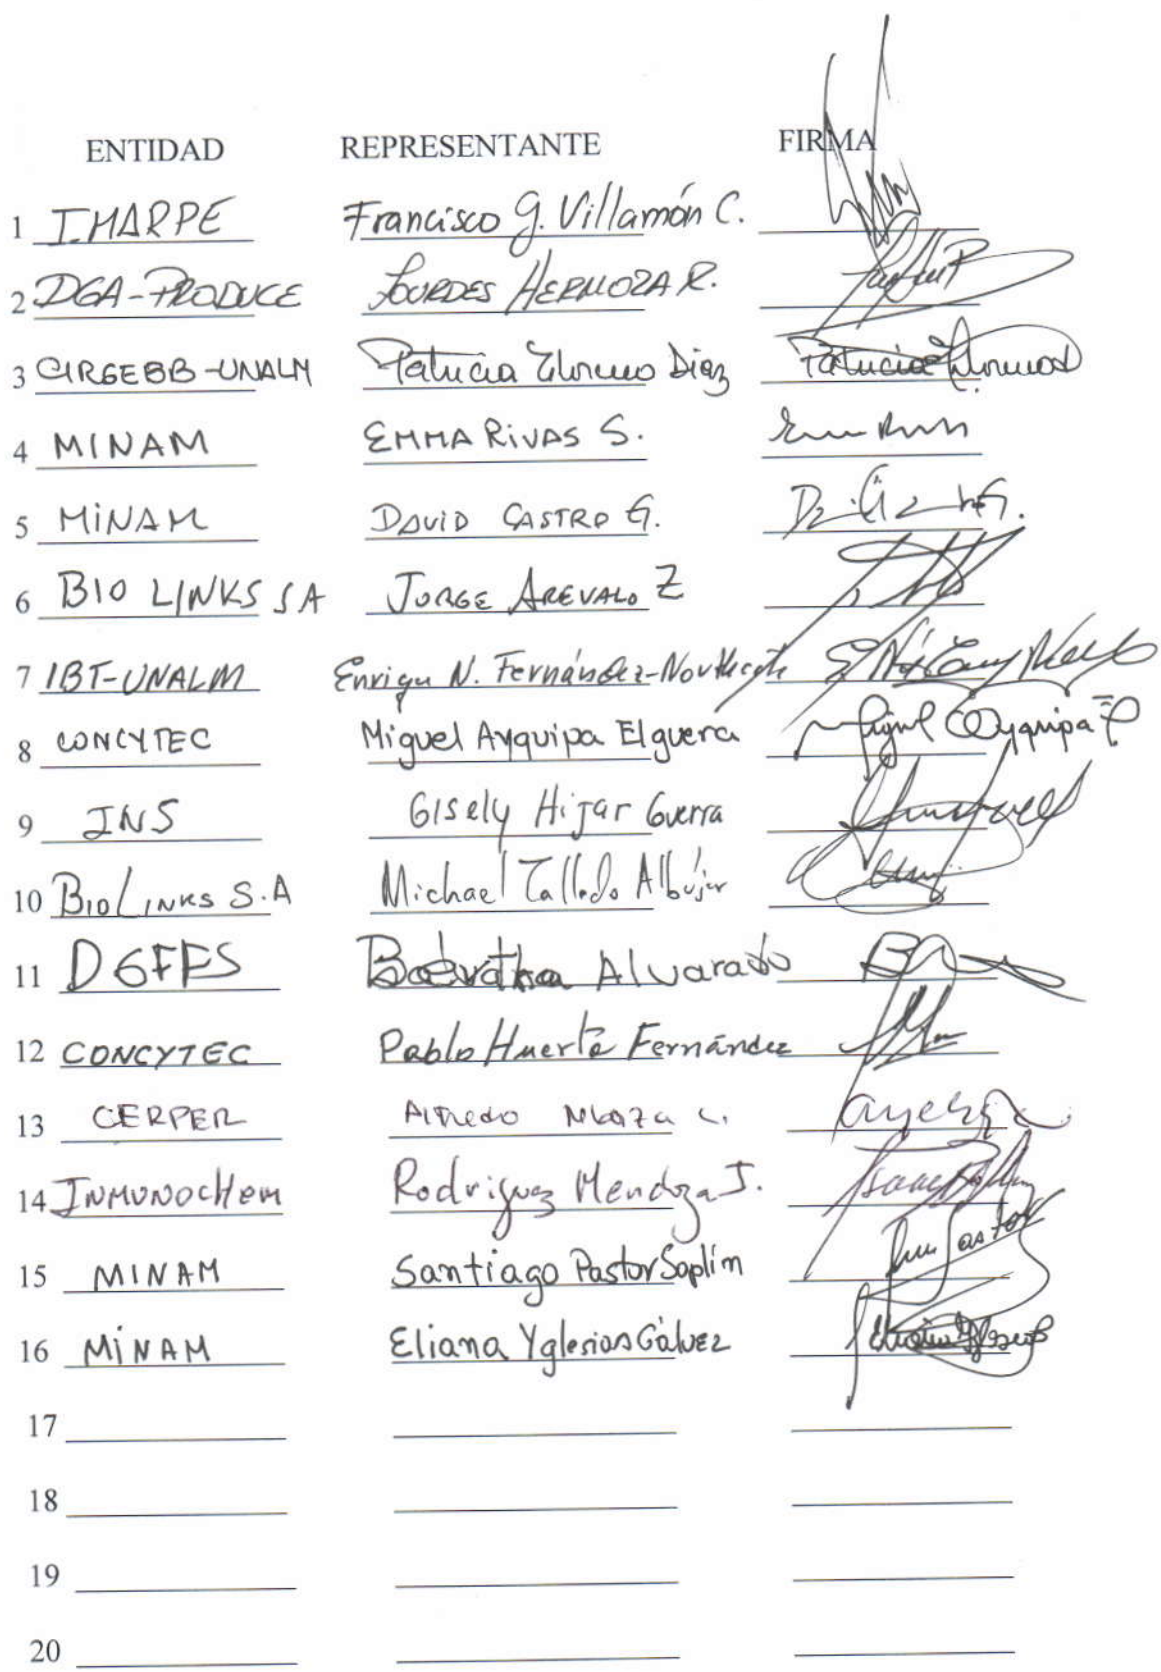 ENTIDAD REPRESENTANTE FIRMA
1 IMARPE Francisco G. Villamón C.
2 DGA-PRODUCE LOURDES HERMOZA R.
3 CIRGEBB-UNALM Patricia Diaz Patricia
4 MINAM EMMA RIVAS S.
5 MINAM DAVID CASTRO G.
6 BIO LINKS SA JORGE AREVALO Z
7 IBT-UNALM Enrique N. Fernández-Northcote
8 CONCYTEC Miguel Ayquipa Elguera Miguel Ayquipa E
9 INS Gisely Hijar Guerra
10 BioLinks S.A Michael Talledo Albújar
11 DGFFS Alvarado
12 CONCYTEC Pablo Huerta Fernández
13 CERPER Alfredo C.
14 INMUNOCHEM Rodriguez Mendoza J.
15 MINAM Santiago Pastor Soplín Pastor
16 MINAM Eliana Yglesias Gálvez
17
18
19
20